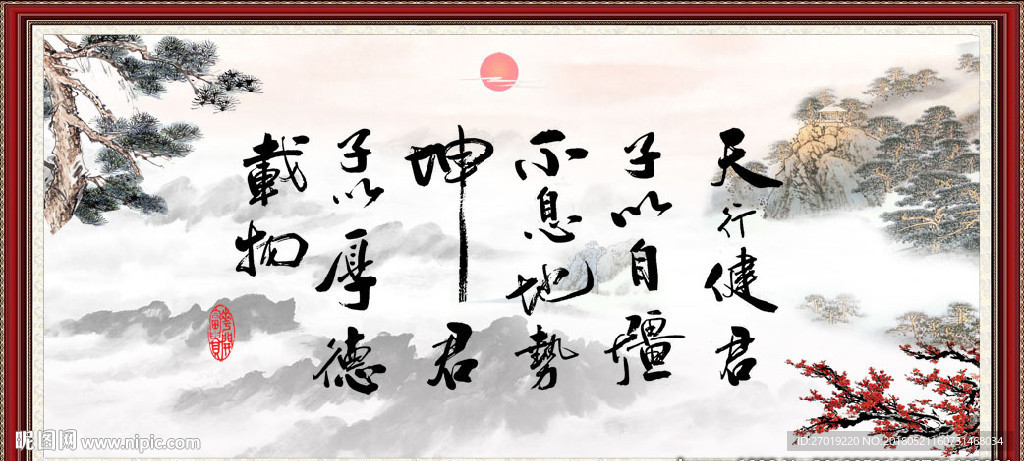 天行健君
子以自彊
不息地勢
坤君
子以厚德
載物
昵图网 www.nipic.com
ID:27019220 NO:20180521160731468034